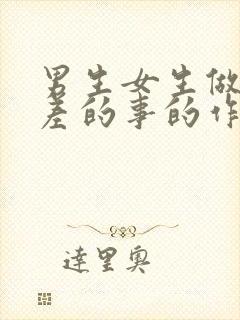 男生女生做
差的事的作
達里奥